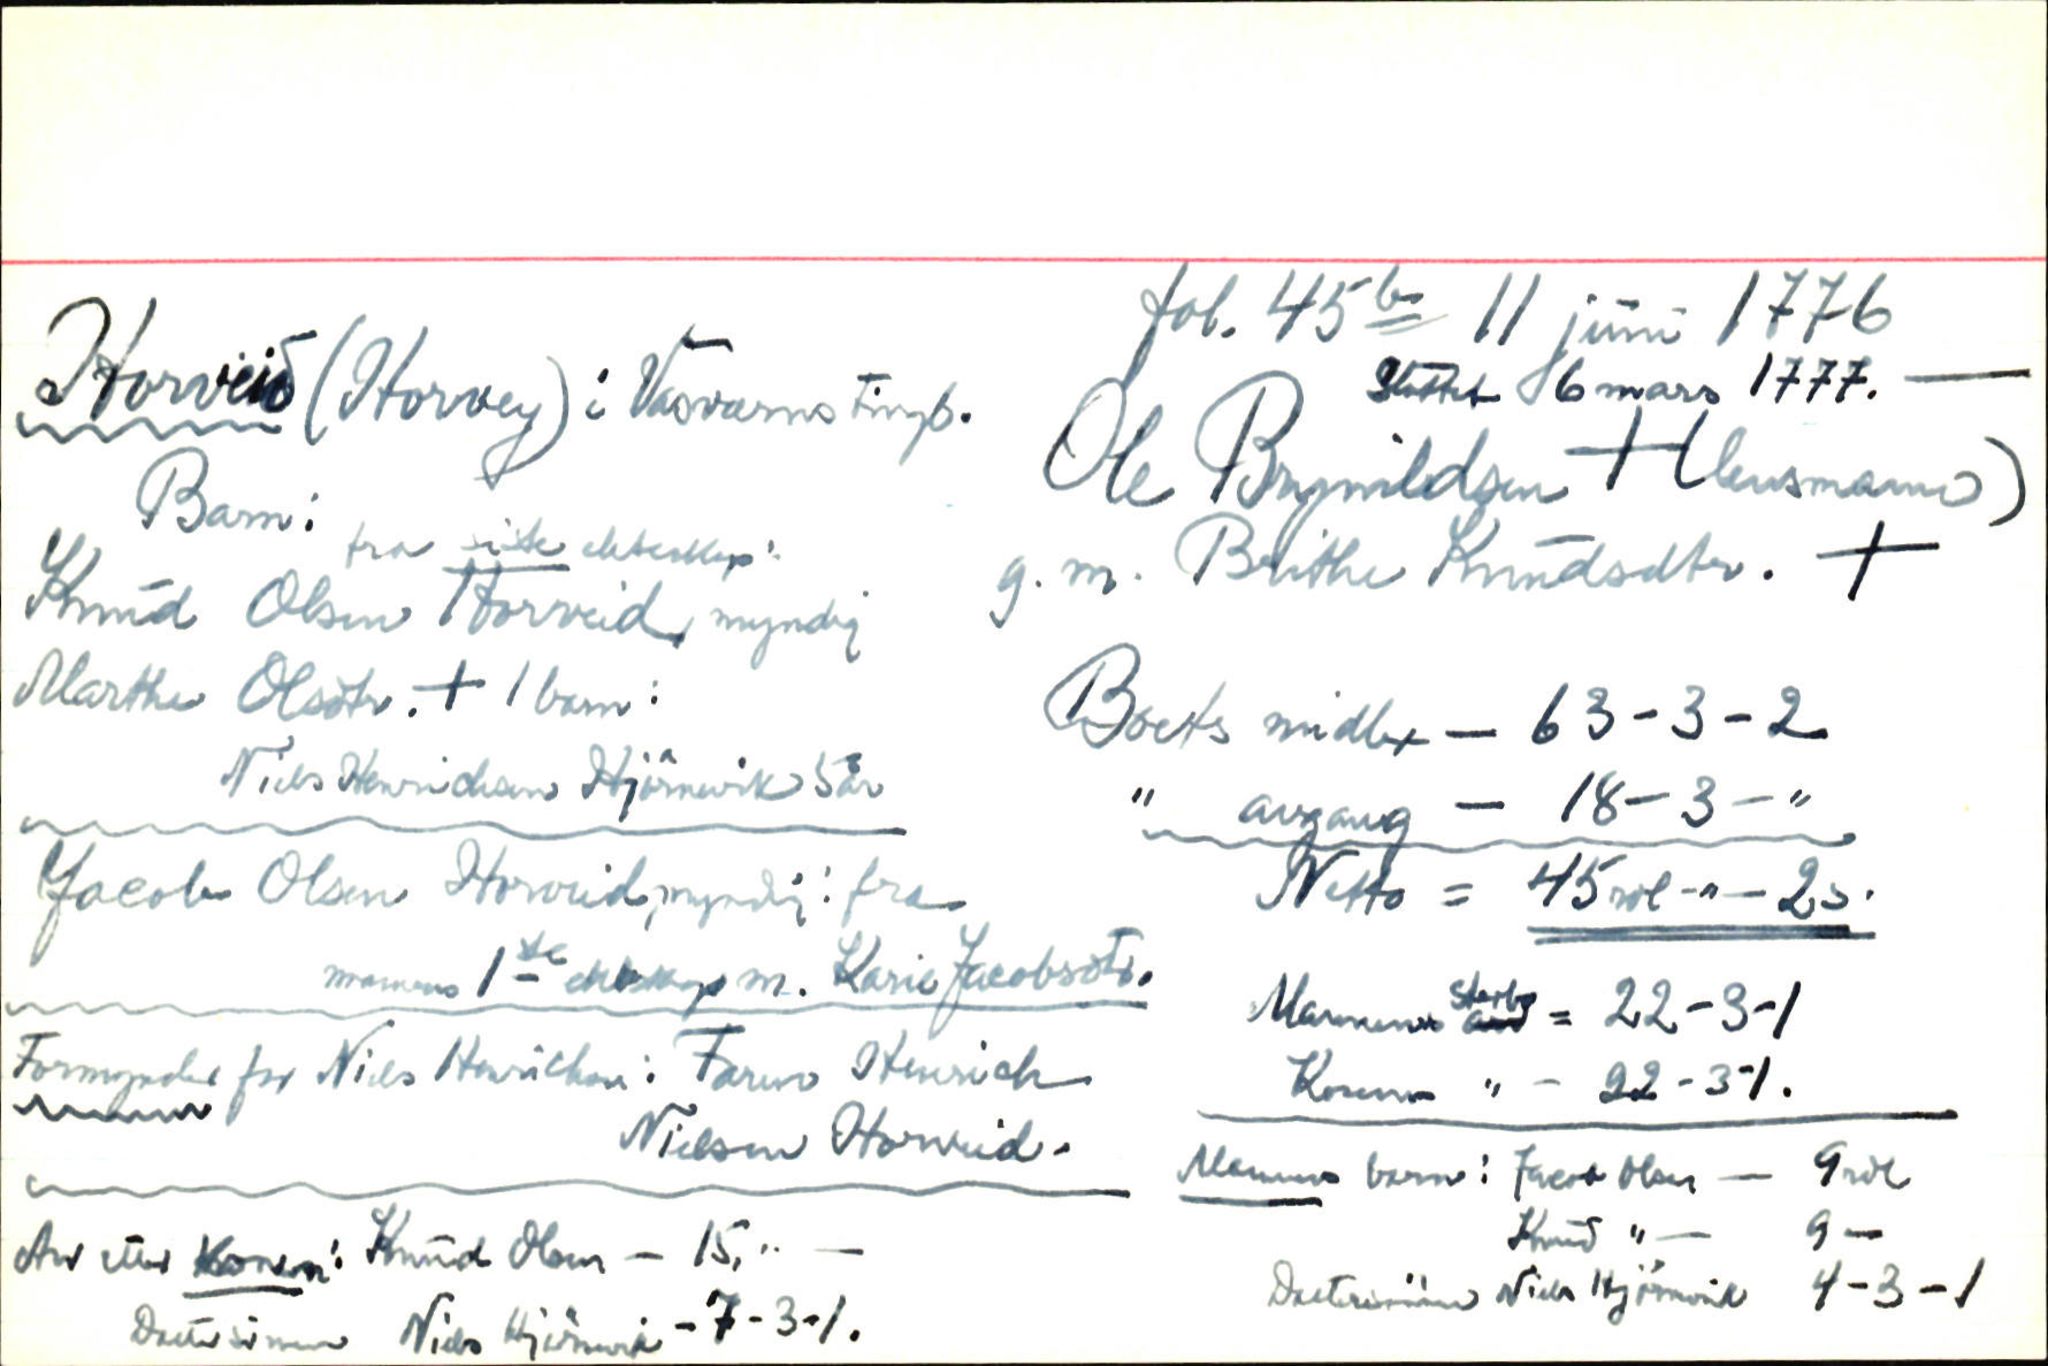 fol. 45b 11 juni 1776
Sluttet 6 mars 1777. —
Horveid (Horvey) i Vasværns Tingb.
Ole Brynildsen + (lensmann)
g. m. Brithe Knudsdtr. +
Barn:
fra siste ekteskap:
Knud Olsen Horveid, myndig
Marthe Olsdtr. + 1 barn:
Niels Henrichsen Hjørnevik 5 år
Jacob Olsen Horveid, myndig: fra
mannens 1ste ekteskap m. Karie Jacobsdtr.
Formynder for Niels Henrichsen: Faren Henrich
Nielsen Horveid.
Arv etter konen: Knud Olsen — 15 " —
Dattersønnen Niels Hjørnevik - 7-3-1.
Boets midler — 63-3-2
" avgang — 18-3-"
Netto = 45 rdl - " - 2 s.
Mannens Sterb = 22-3-1
Konens " - 22-3-1.
Mannens barn: Jacob Olsen — 9 rdl
Knud " — 9 —
Dattersønnen Niels Hjørnevik 4-3-1